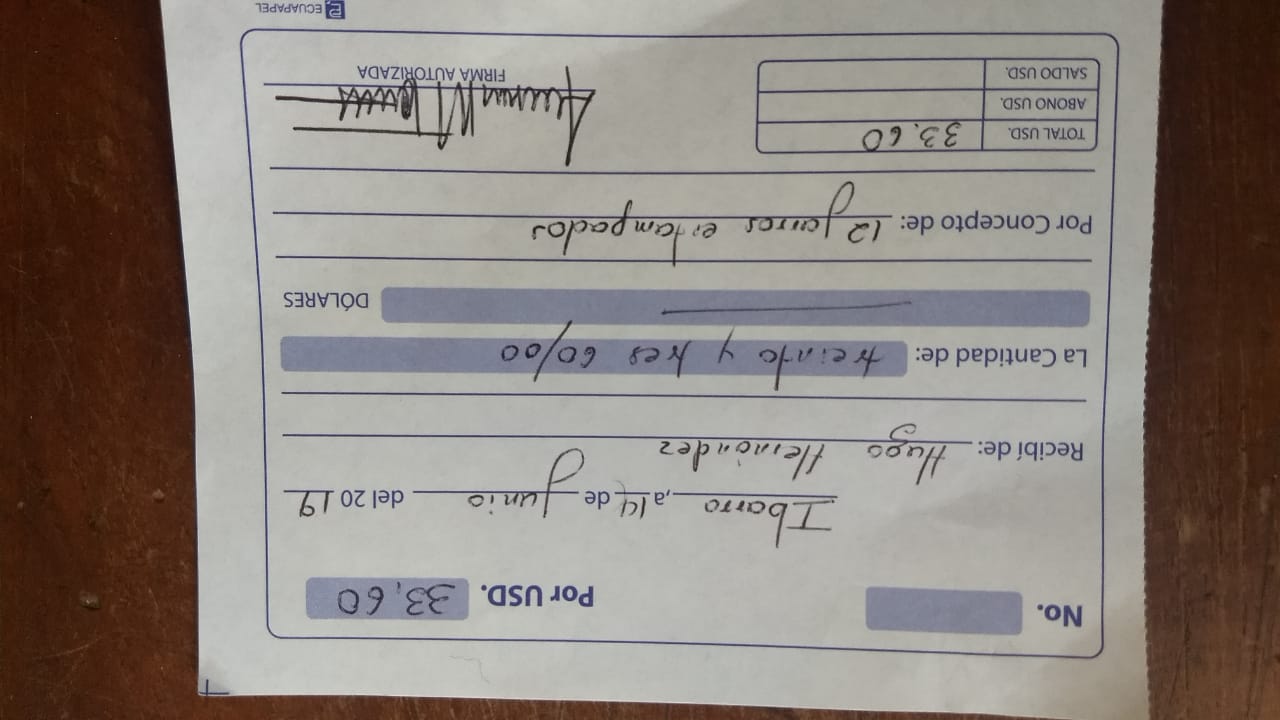 No. Por USD. 33,60
Ibarra, a 14 de Junio del 2019
Recibí de: Hugo Hernández
La Cantidad de: treinta y tres 60/00
DÓLARES
Por Concepto de: 12 jarros estampados
TOTAL USD. 33,60
ABONO USD.
SALDO USD.
FIRMA AUTORIZADA
ECUAPAPEL